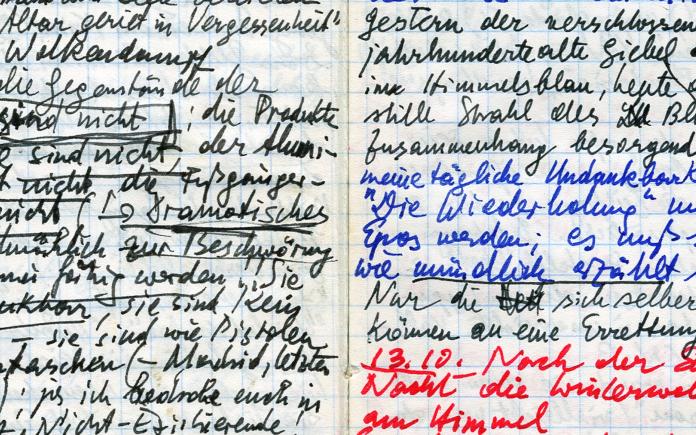 Altar geriet in Vergessenheit"
Wolkendampf
die Gegenstände der
sind nicht ; die Produkte
e sind nicht, der Alumi-
t nicht, die Fußgänger-
nicht (→ Dramatisches
zur Beschwörung
fähig werden, "Sie
sie sind, kein
– sie sind wie Pistolen
taschen (– Madrid, letzten
ja ich bedrohe euch in
Nicht-Existierende!
gestern der verschlossen
jahrhundertealte Giebel
ins Himmelsblau, hegte
stille Strahl des Bl
Zusammenhang besorgend
meine tägliche Undankbark
"Die Wiederholung" m
Epos werden; es muß
wie mündlich erzählt
Nur die sich selber
können an eine Errettung
13.10. Nach der
Nacht die Winterwol
am Himmel